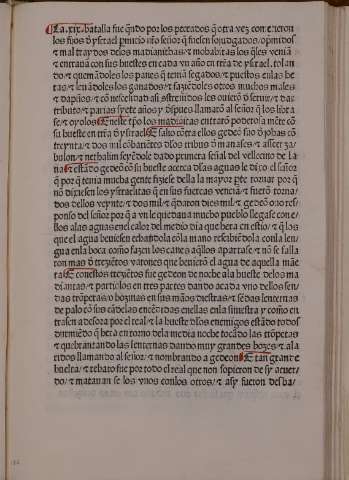 La .xix. batalla fue q̃ndo por los peccados q̃ otra vez cometieron
los fijos d̃ ysrael p̃mitio n̄ro señor q̃ fuesen sojudgados / op̃midos
⁊ mal traydos delos madianitas / ⁊ mohabitas los q̃les veniā
⁊ entrauā con sus huestes en cada vn año en trr̄a de ysrael. tolan
do / ⁊ quemādoles los panes q̃ tenīa segados / ⁊ puestos enlas he
ras / ⁊ leuādoles los ganados / ⁊ faziēdoles otros muchos males
⁊ dapños / ⁊ cō necessidad assi
tributo / ⁊ parias syete años / ⁊ dspues llamarō al señor q̃ los libra
se / ⁊ oyolos Eneste tp̃o los madianitas entrarō poderosa mēte cō
su hueste en trr̄a d̃ ysrael E salio cōtra ellos gedeō fijo d̃ johas cō
treynta / ⁊ dos mil cōbatiētes dlos tribus d̃ manases / ⁊ aser / za
bulon / ⁊ neptalim seyēdole dado primera señal del vellocino de la
na E estādo gedeō cō su hueste acerca dlas aguas le dixo el señor
q̃ por q̃ tenia mucha gente fiziese della la mayor p̃te tornar por q̃
nō dixiesen los ysraelitas q̃ en sus fuerças venciā / ⁊ fuerō torna
dos dellos veynte / ⁊ dos mil / ⁊ q̃daron dies mil / ⁊ gedeō ouo res
ponso del señor por q̃ avn le quedaua mucho pueblo llegase con e
llos alas aguas enel calor del medio dia que beuiesen / ⁊ q̃ los
que el agua beuiesen echandola cō la mano rescibiēdola con la len
gua enla boca como fazen los canes aq̃llos apartase / ⁊ nō se falla
ron mas d̃ trezientos varones que beuierō el agua de aquella māe
ra E conestos trezientos fue gedeon de noche ala hueste delos ma
dianitas / ⁊ partiolos en tres partes dando a cada vno dellos sen
das trōpetas o bozinas en sus manos diestras / ⁊ sēdas lenternas
de palo cō sus cādelas encēdidas enellas enla siniestra / ⁊ como en
trasen a desora por el real / ⁊ la hueste dlos enemigos estādo todos
durmiēdo q̃ hera en torno dela media noche tocādo las trōpetas
⁊ quebrantando las lenternas dando muy grandes bozes / ⁊ ala
ridos llamando al señor / ⁊ nombrando a gedeon E tan grande
buelta / ⁊ rebato fue por todo el real que non sopieron de sy acuer
do / ⁊ matauan se los vnos conlos otros / ⁊ asy fueron desba/